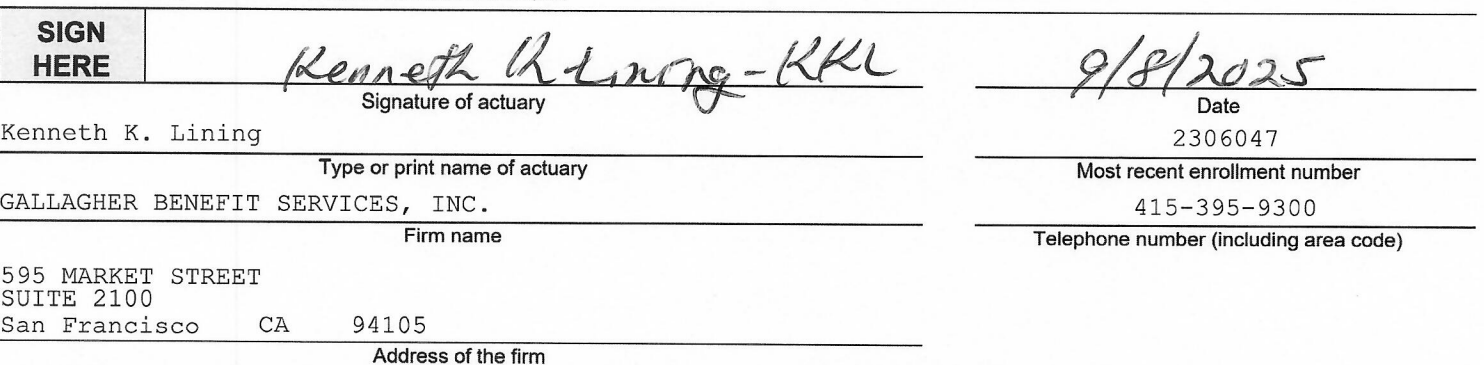 SIGN
HERE
Kenneth K. Lining - KKL
9/8/2025
Signature of actuary
Date
Kenneth K. Lining
2306047
Type or print name of actuary
Most recent enrollment number
GALLAGHER BENEFIT SERVICES, INC.
415-395-9300
Firm name
Telephone number (including area code)
595 MARKET STREET
SUITE 2100
San Francisco CA 94105
Address of the firm